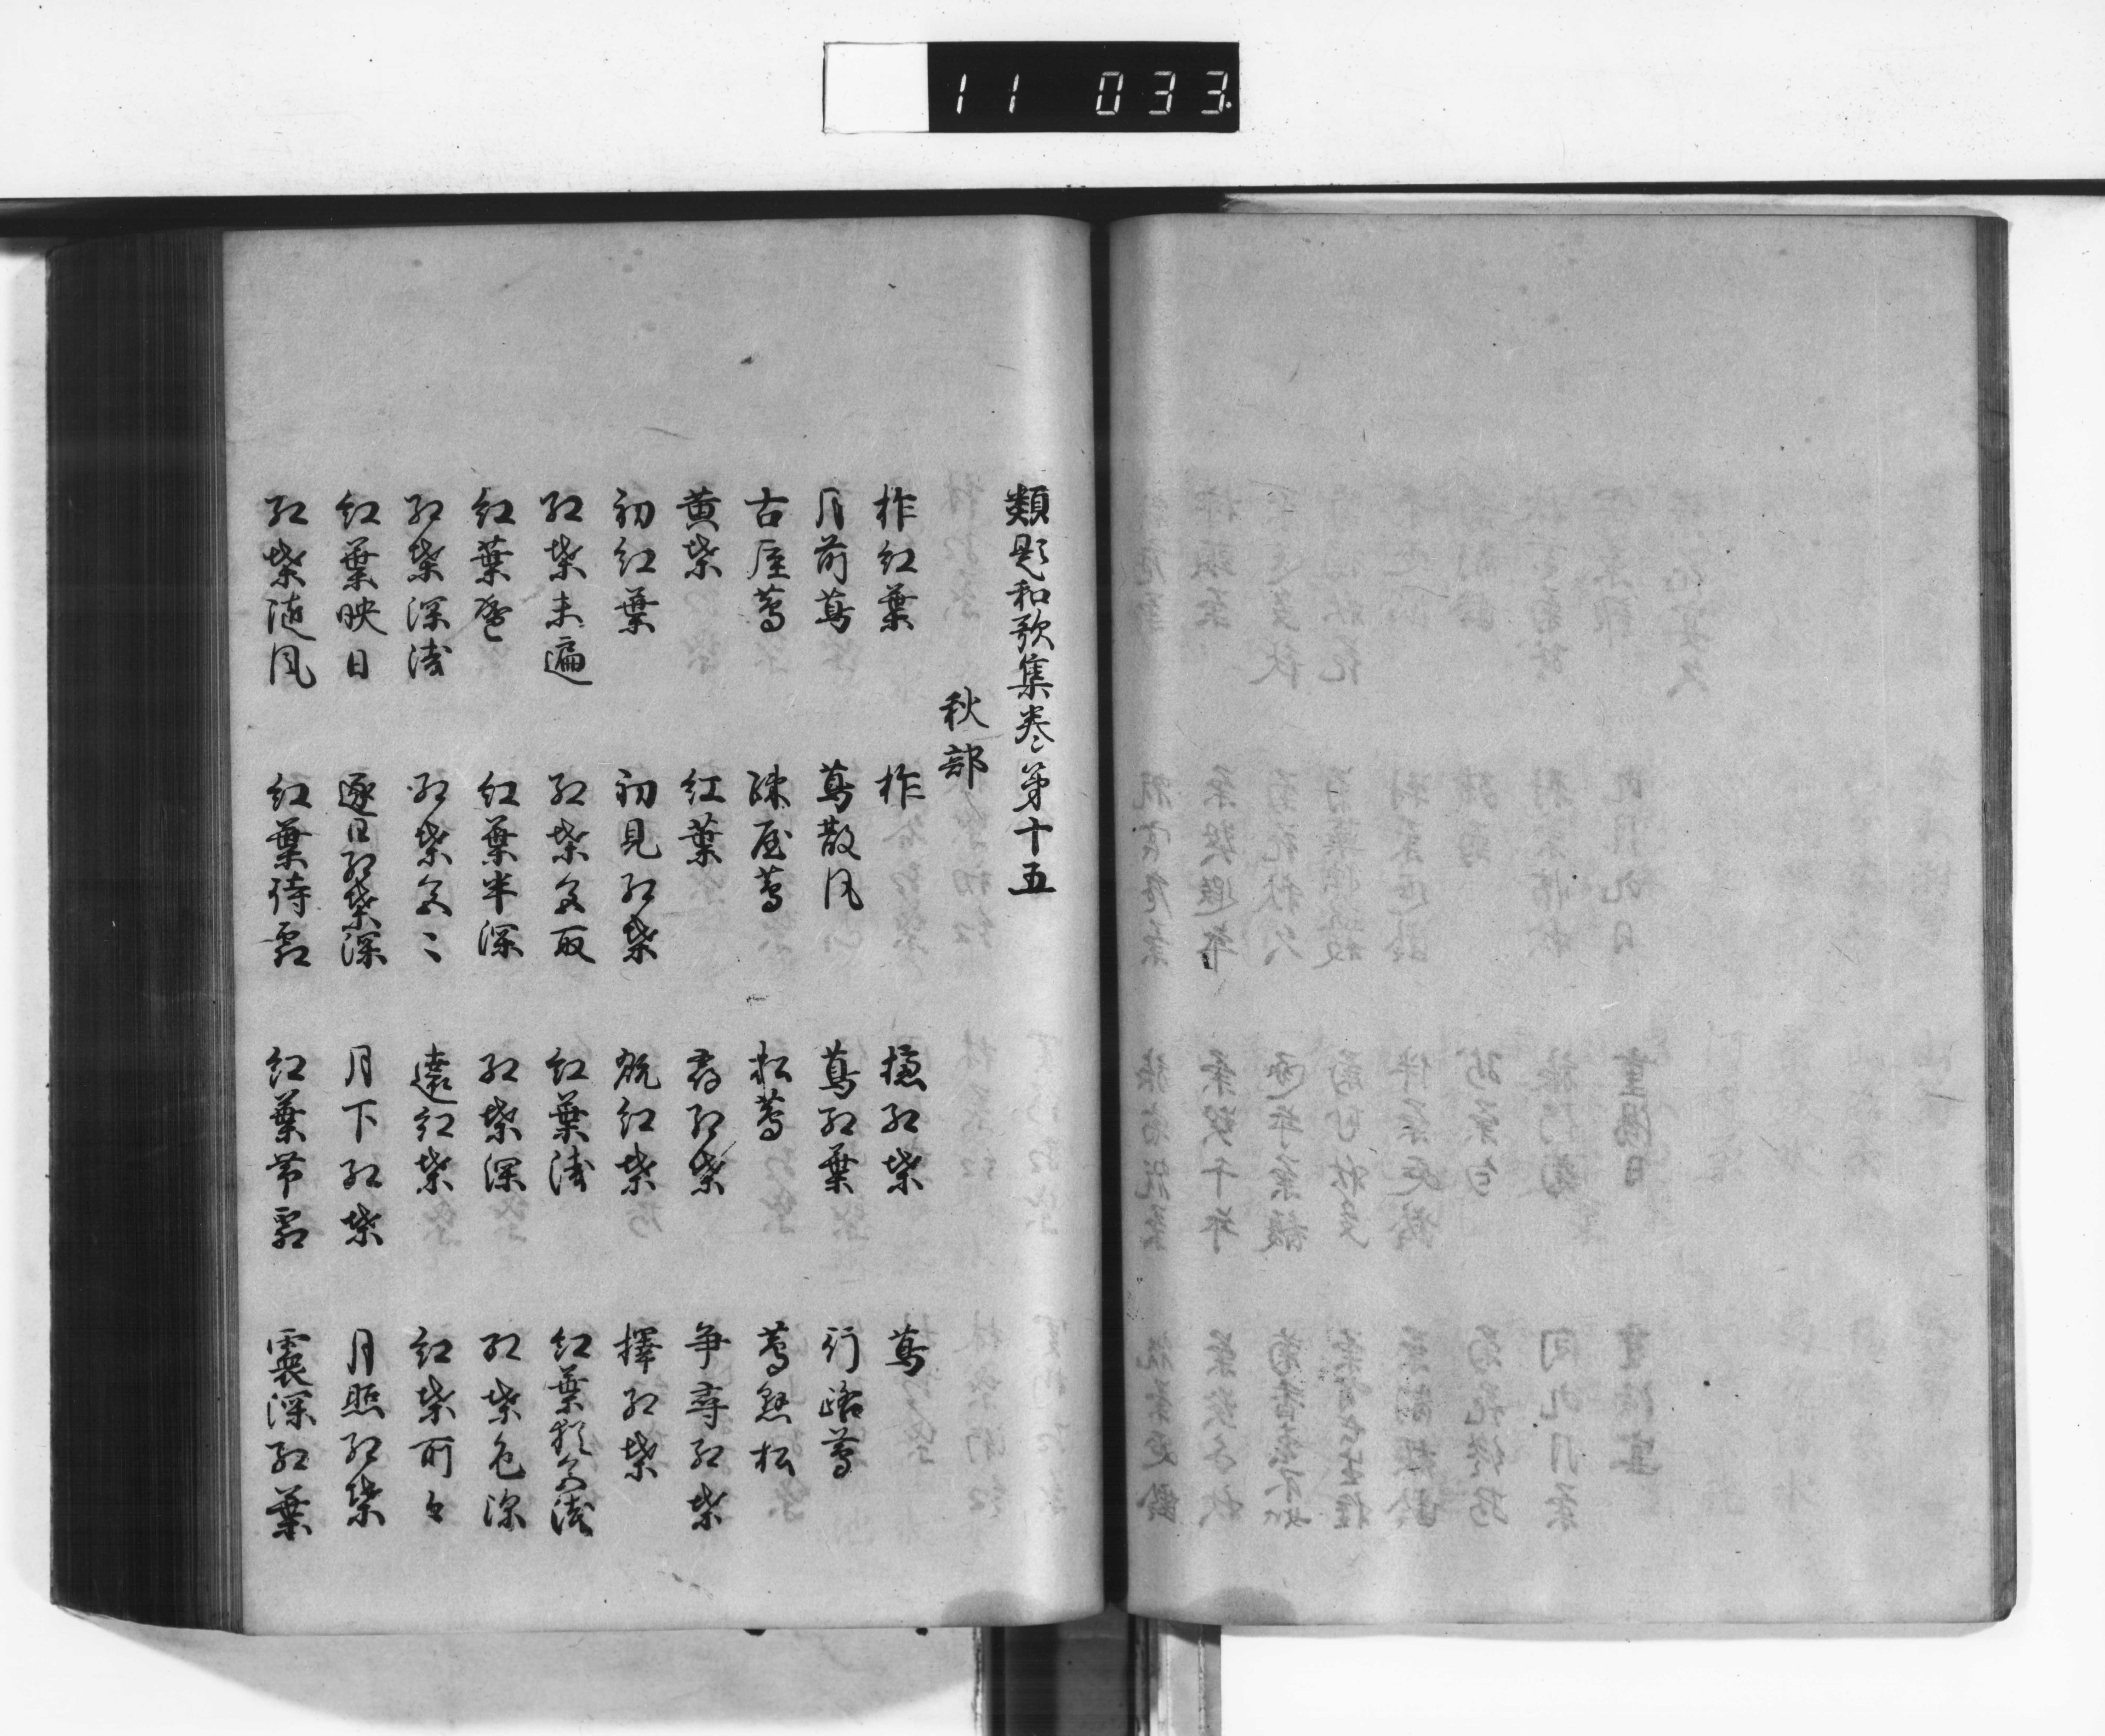 11 033
類題和歌集巻第十五
秋部
柞紅葉 柞 櫨紅葉 蔦
月前蔦 蔦散風 蔦紅葉 行路蔦
古屋蔦 疎屋蔦 松蔦 蔦懸松
黄葉 紅葉 尋紅葉 争尋紅葉
初紅葉 初見紅葉 翫紅葉 擇紅葉
紅葉未遍 紅葉 紅葉浅 紅葉猶浅
紅葉 紅葉半深 紅葉深 紅葉色深
紅葉深浅 紅葉色々 遠紅葉 紅葉所々
紅葉映日 逐日紅葉深 月下紅葉 月照紅葉
紅葉随風 紅葉待霜 紅葉帯霜 露深紅葉